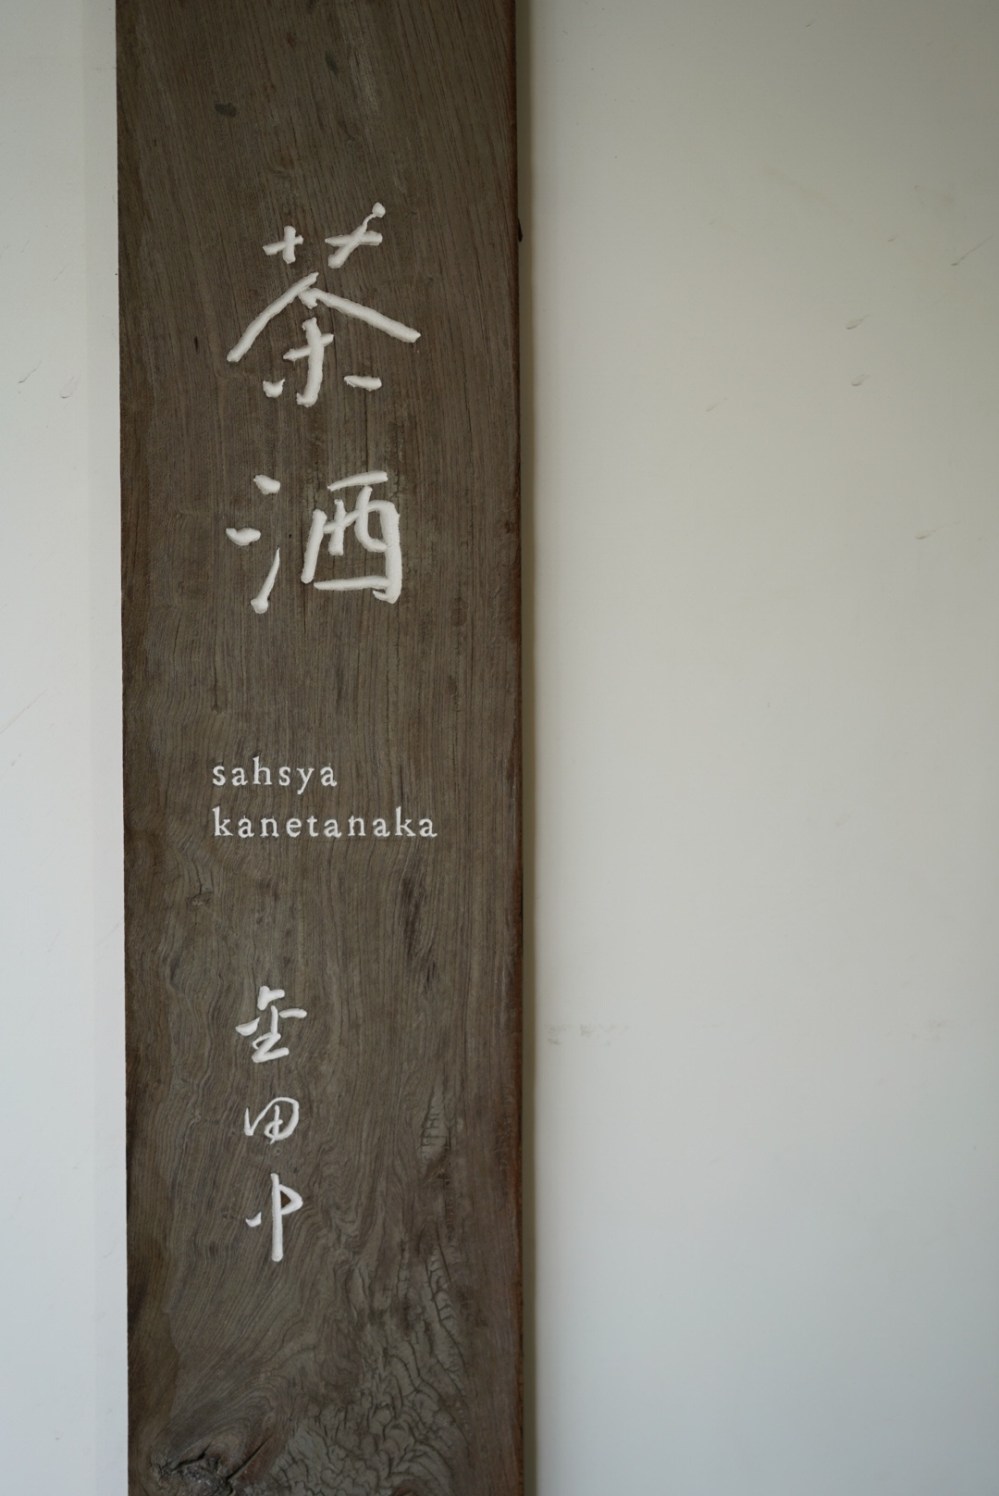 茶酒
sahsya
kanetanaka
金田中